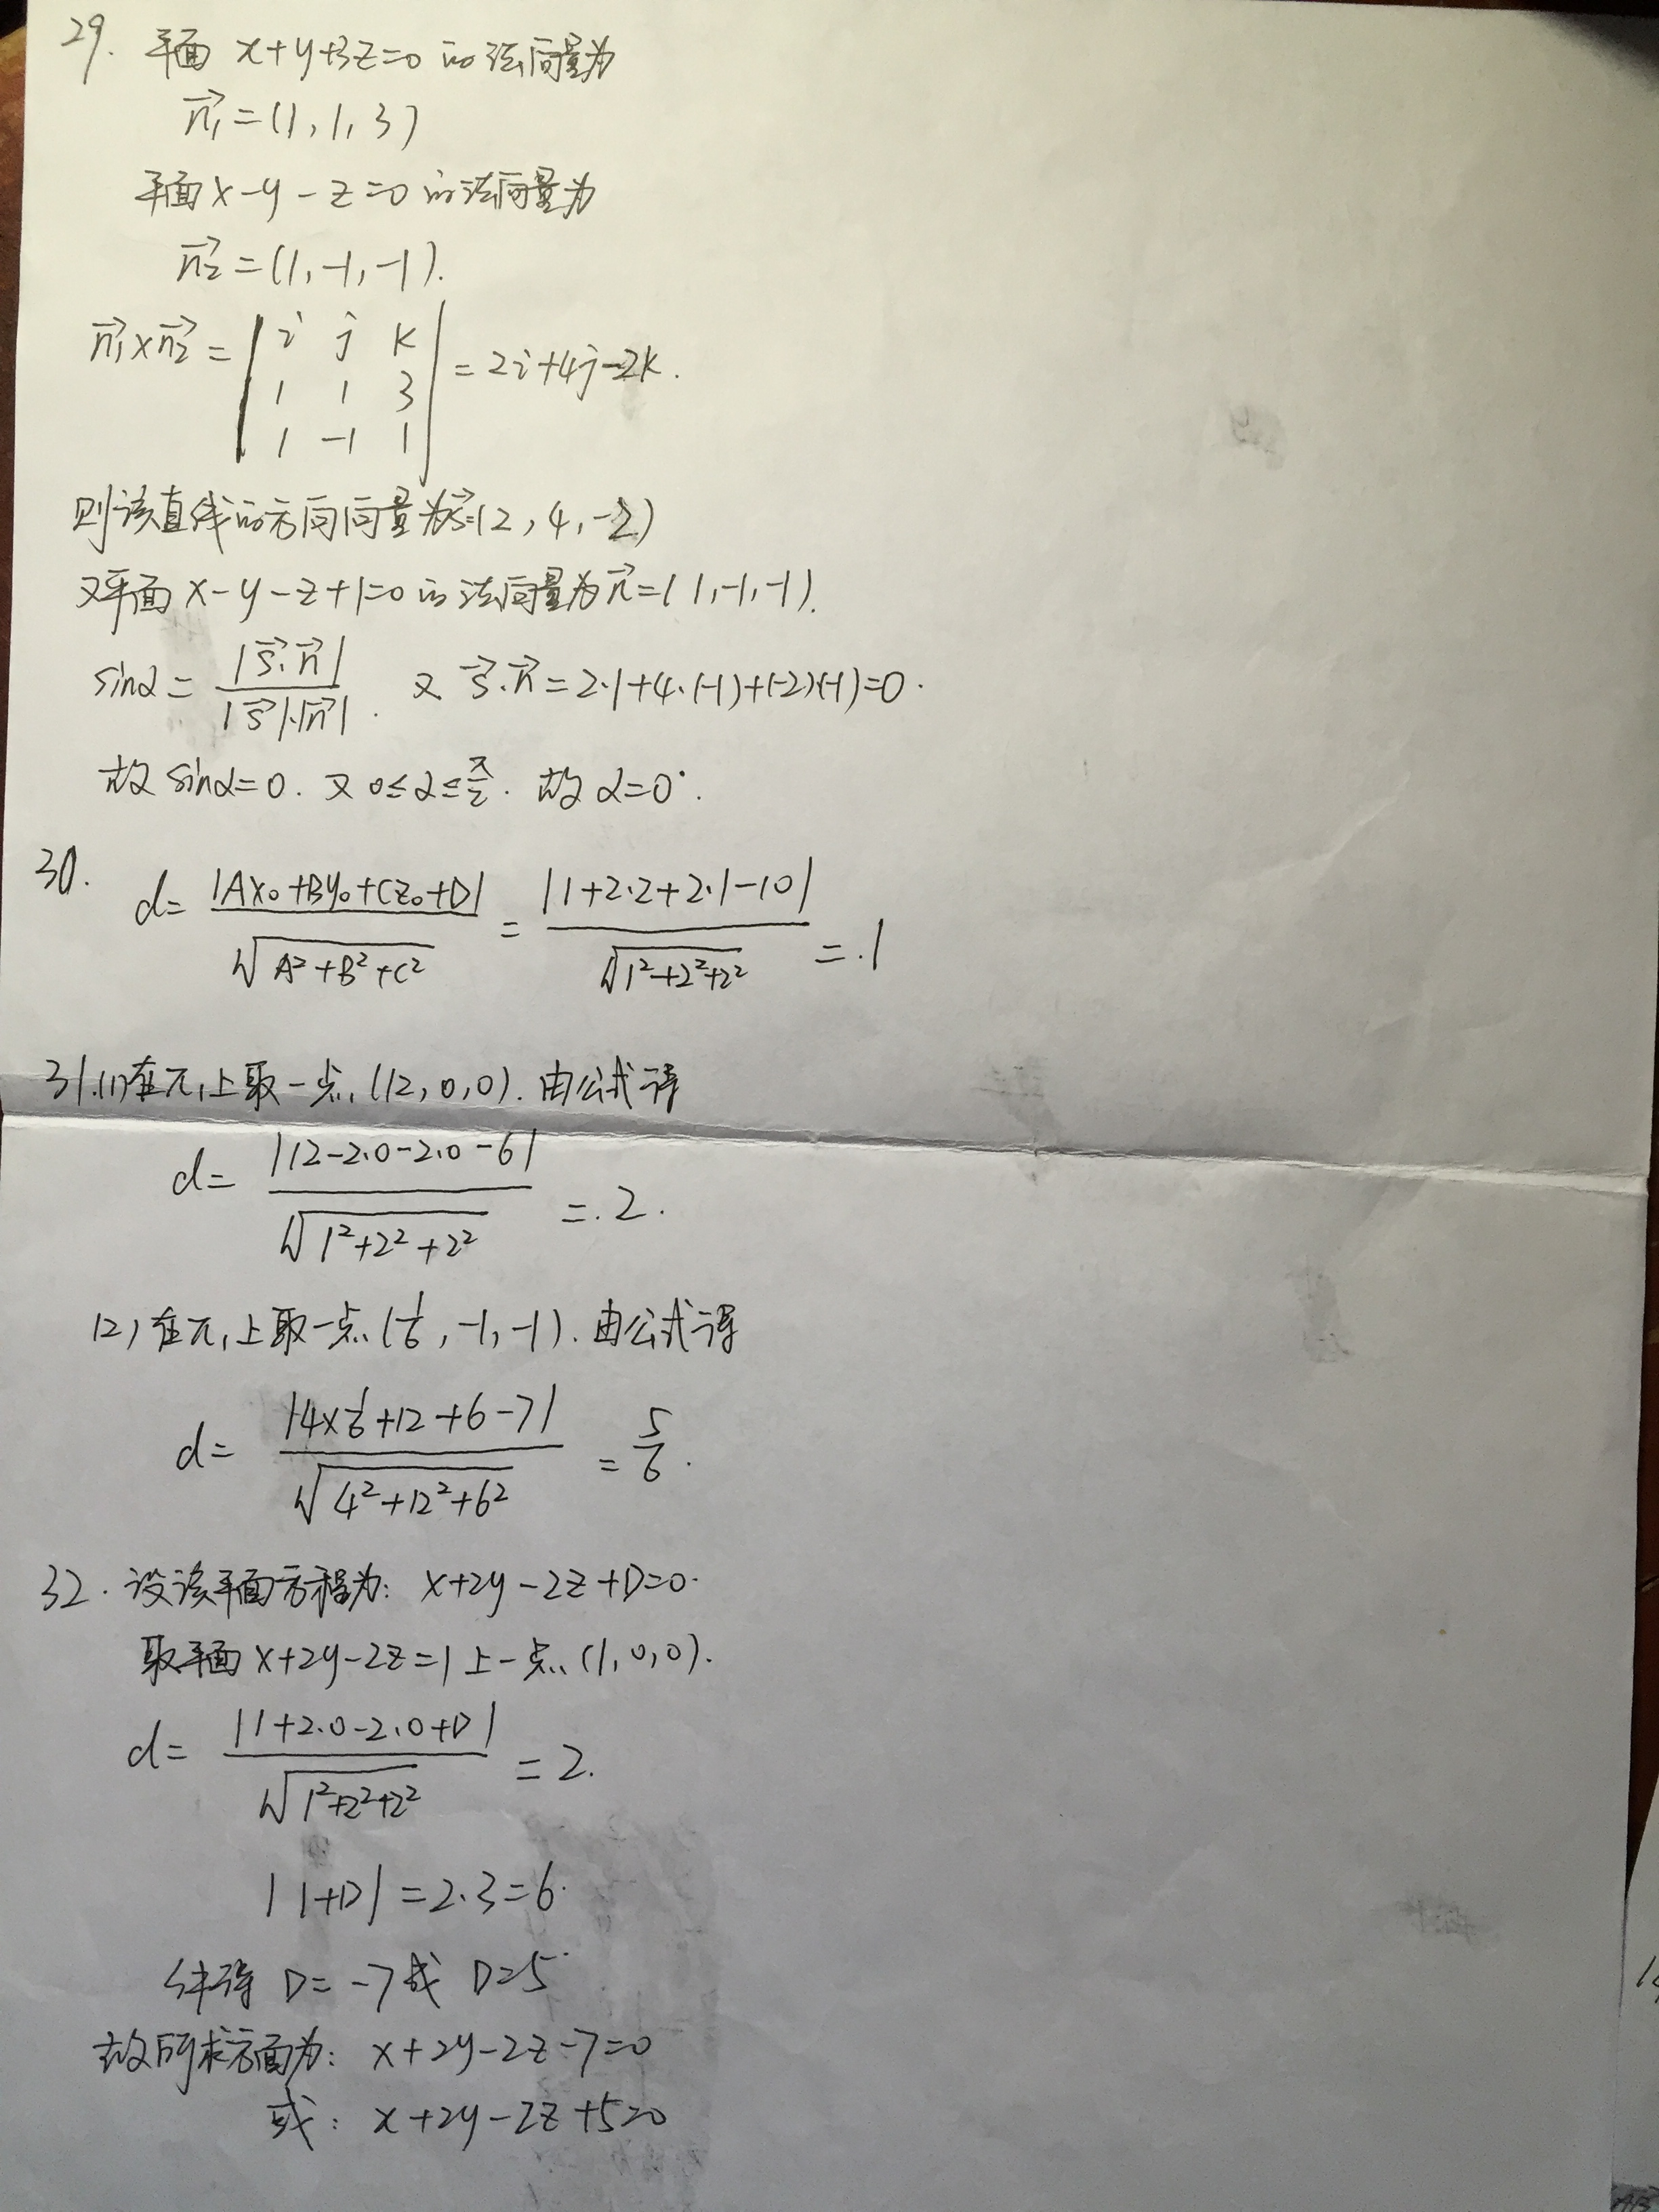 29. 平面 x+y+3z=0 的法向量为
n₁⃗=(1,1,3)
平面x-y-z=0的法向量为
n₂⃗=(1,-1,-1).
n₁⃗×n₂⃗= | i j k |
| 1 1 3 | =2i+4j-2k.
| 1 -1 1 |
则该直线的方向向量为s⃗=(2,4,-2)
又平面x-y-z+1=0的法向量为n⃗=(1,-1,-1).
sinα= |s⃗·n⃗| / |s⃗|·|n⃗| . 又 s⃗·n⃗=2·1+4·(-1)+(-2)(-1)=0.
故sinα=0. 又0≤α≤π/2. 故α=0°.
30. d= |Ax₀+By₀+Cz₀+D| / √(A²+B²+C²) = |1+2·2+2·1-10| / √(1²+2²+2²) =1
31.(1)在π₁上取一点(12,0,0). 由公式得
d= |12-2·0-2·0-6| / √(1²+2²+2²) =2.
(2)在π₁上取一点(1/6,-1,-1). 由公式得
d= |4×1/6+12+6-7| / √(4²+12²+6²) = 5/6.
32. 设该平面方程为: x+2y-2z+D=0.
取平面x+2y-2z=1上一点(1,0,0).
d= |1+2·0-2·0+D| / √(1²+2²+2²) =2.
|1+D|=2·3=6.
解得 D=-7或 D=5
故所求方面为: x+2y-2z-7=0
或: x+2y-2z+5=0